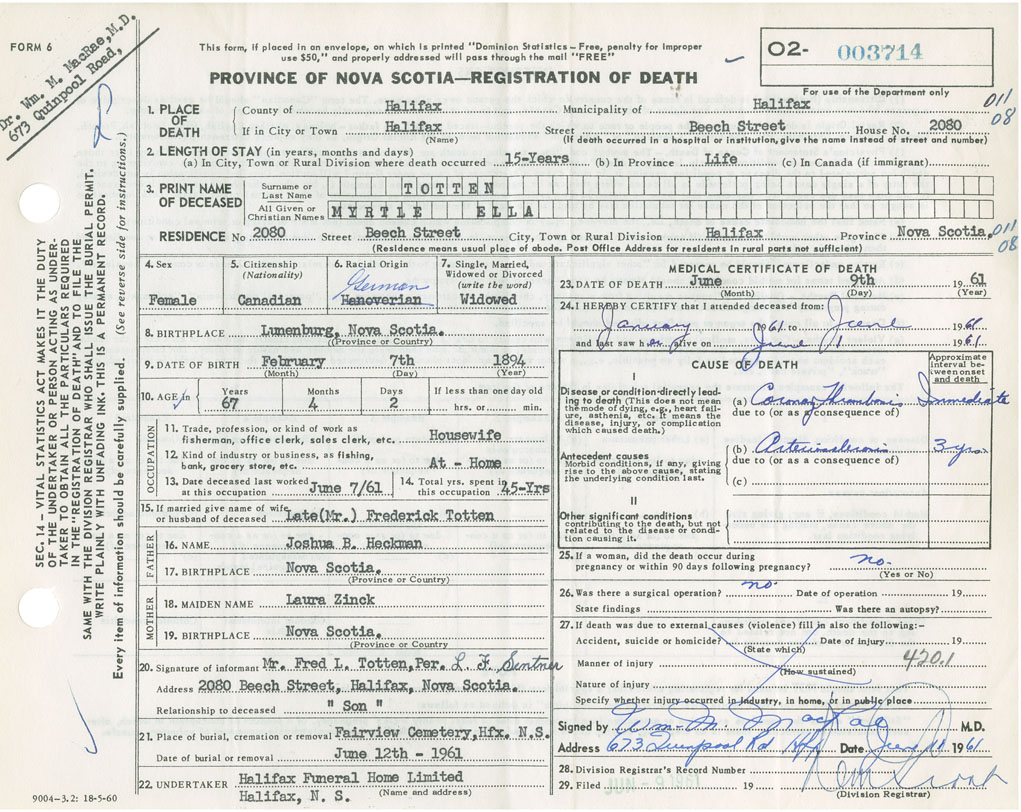 FORM 6
Dr. Wm. M. MacRae, M.D.
673 Quinpool Road,
This form, if placed in an envelope, on which is printed "Dominion Statistics – Free, penalty for improper
use $50," and properly addressed will pass through the mail "FREE"
O2- 003714
For use of the Department only
PROVINCE OF NOVA SCOTIA—REGISTRATION OF DEATH
SEC. 14 – VITAL STATISTICS ACT MAKES IT THE DUTY
OF THE UNDERTAKER OR PERSON ACTING AS UNDER-
TAKER TO OBTAIN ALL THE PARTICULARS REQUIRED
IN THE "REGISTRATION OF DEATH" AND TO FILE THE
SAME WITH THE DIVISION REGISTRAR WHO SHALL ISSUE THE BURIAL PERMIT.
WRITE PLAINLY WITH UNFADING INK. THIS IS A PERMANENT RECORD.
Every item of information should be carefully supplied. (See reverse side for instructions.)
1. PLACE OF DEATH
County of Halifax Municipality of Halifax
011
08
If in City or Town Halifax Street Beech Street House No. 2080
(Name) (If death occurred in a hospital or institution, give the name instead of street and number)
2. LENGTH OF STAY (in years, months and days)
(a) In City, Town or Rural Division where death occurred 15-Years (b) In Province Life (c) In Canada (if immigrant)
3. PRINT NAME OF DECEASED
Surname or Last Name TOTTEN
All Given or Christian Names MYRTLE ELLA
RESIDENCE No 2080 Street Beech Street City, Town or Rural Division Halifax Province Nova Scotia.
011
08
(Residence means usual place of abode. Post Office Address for residents in rural parts not sufficient)
4. Sex
Female
5. Citizenship
(Nationality)
Canadian
6. Racial Origin
German
Hanoverian
7. Single, Married,
Widowed or Divorced
(write the word)
Widowed
8. BIRTHPLACE Lunenburg, Nova Scotia.
(Province or Country)
9. DATE OF BIRTH February 7th 1894
(Month) (Day) (Year)
10. AGE in Years 67 Months 4 Days 2
If less than one day old
hrs. or min.
OCCUPATION
11. Trade, profession, or kind of work as
fisherman, office clerk, sales clerk, etc. Housewife
12. Kind of industry or business, as fishing,
bank, grocery store, etc. At - Home
13. Date deceased last worked
at this occupation June 7/61
14. Total yrs. spent in
this occupation 45-Yrs
15. If married give name of wife
or husband of deceased Late(Mr.) Frederick Totten
FATHER
16. NAME Joshua B. Heckman
17. BIRTHPLACE Nova Scotia.
(Province or Country)
MOTHER
18. MAIDEN NAME Laura Zinck
19. BIRTHPLACE Nova Scotia.
(Province or Country
20. Signature of informant Mr. Fred L. Totten, Per. L. F.
Address 2080 Beech Street, Halifax, Nova Scotia.
Relationship to deceased " Son "
21. Place of burial, cremation or removal Fairview Cemetery, Hfx. N.S.
Date of burial or removal June 12th - 1961
22. UNDERTAKER Halifax Funeral Home Limited
Halifax, N. S. (Name and address)
9004-3.2: 18-5-60
MEDICAL CERTIFICATE OF DEATH
23. DATE OF DEATH June 9th 19 61
(Month) (Day) (Year)
24. I HEREBY CERTIFY that I attended deceased from:
January 1961 to June 1961
and last saw her alive on June 1 1961
CAUSE OF DEATH
Approximate interval between onset and death
I
Disease or condition directly lead-
ing to death (This does not mean
the mode of dying, e.g., heart fail-
ure, asthenia, etc. It means the
disease, injury, or complication
which caused death.)
(a) Coronary Thrombosis Immediate
due to (or as a consequence of)
Antecedent causes
Morbid conditions, if any, giving
rise to the above cause, stating
the underlying condition last.
(b) Arteriosclerosis 3 yrs.
due to (or as a consequence of)
(c)
II
Other significant conditions
contributing to the death, but not
related to the disease or condi-
tion causing it.
25. If a woman, did the death occur during
pregnancy or within 90 days following pregnancy? no.
(Yes or No)
26. Was there a surgical operation? no. Date of operation 19
State findings Was there an autopsy?
27. If death was due to external causes (violence) fill in also the following:-
Accident, suicide or homicide? Date of injury 19
(State which)
Manner of injury 420.1
(How sustained)
Nature of injury
Specify whether injury occurred in industry, in home, or in public place
Signed by Wm. M. MacRae M.D.
Address 673 Quinpool Rd Hfx Date June 11 1961
28. Division Registrar's Record Number
29. Filed 19
(Division Registrar)